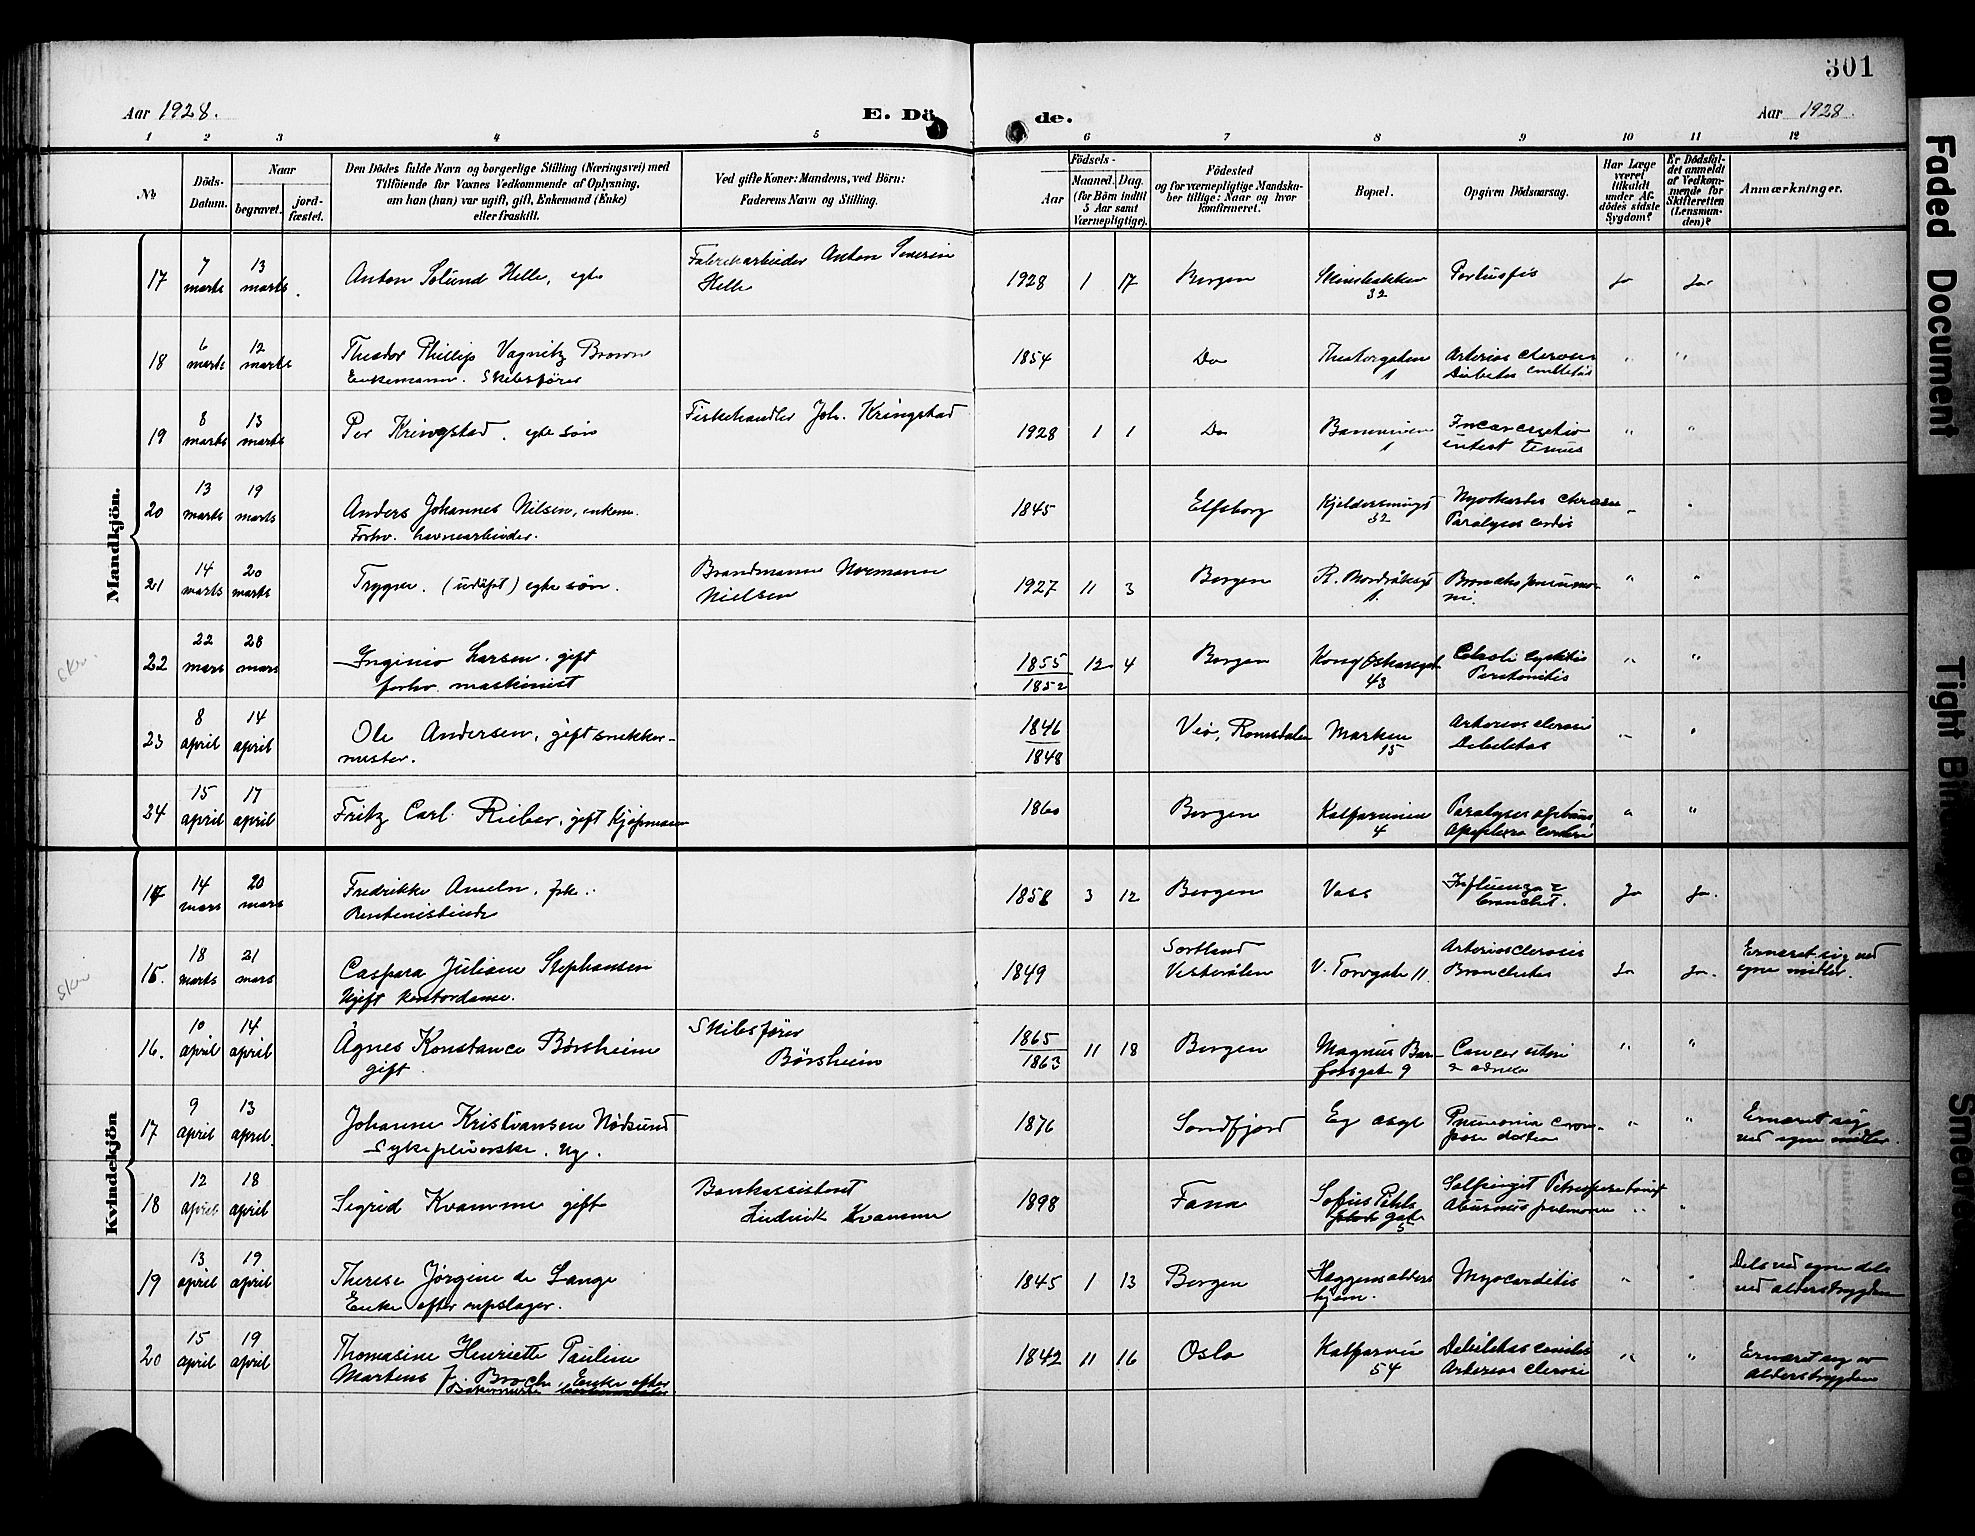 301
Aar 1928.
E. Dö
de.
Aar 1928.
1 2 3 4 5 6 7 8 9 10 11 12
No
Döds-Datum.
Naar
begravet.
jord-fæstet.
Den Dödes fulde Navn og borgerlige Stilling (Næringsvei) med
Tilföiende for Voxnes Vedkommende af Oplysning,
om han (hun) var ugift, gift, Enkemand (Enke)
eller fraskilt.
Ved gifte Koner: Mandens, ved Börn:
Faderens Navn og Stilling.
Födsels-
Aar
Maaned. Dag.
(for Börn indtil
5 Aar samt
Værnepligtige).
Födested
og for værnepligtige Mandska-
ber tillige: Naar og hvor
konfirmeret.
Bopæl.
Opgiven Dödsaarsag.
Har Læge
været
tilkaldt
under Af-
dödes sidste
Sygdom?
Er Dödsfal-
det anmeldt
af Vedkom-
mende for
Skifteretten
(Lensman-
den)?
Anmærkninger.
Mandkjön.
17 7 marts 13 marts Anton Solund Helle, egte Fabrikarbeider Anton Severin Helle 1928 1 17 Bergen 32 Ja Ja
18 6 marts 12 marts Theodor Phillip Vagnitz Brown Enkemann. Skibsfører 1854 Do Theatergaten 1 " "
19 8 marts 13 marts Per Kringstad. egte søn Fiskehandler Joh. Kringstad 1928 1 1 Do 1 " "
20 13 marts 19 marts Anders Johannes Nilsen, enkem. Forhv. havnearbeider. 1845 Elfsborg 32 Paralyses cordis " "
21 14 marts 20 marts Trygve. (udøpt) egte søn. Brandmann Normann Nielsen 1927 11 3 Bergen R. Nordråksgt 1. Bronchopneumoni. " "
skr.
22 22 mars 28 mars Inginio Larsen. gift forhv. maskinist 1855 1852 12 4 Bergen Kong Oskarsgt 43 " "
23 8 april 14 april Ole Andersen, gift snekkermester. 1846 1848 Veö, Romsdalen Marken 15 Debilitas " "
24 15 april 17 april Fritz Carl Rieber, gift kjøpmann 1860 Bergen Kalfarveien 4 " "
Kvindekjön
14 14 mars 20 mars Fredrikke Ameln. frk. Rentenistinde 1858 3 12 Bergen Voss Influenza & bronchit. Ja Ja.
skr
15. 18 marts 21 mars Caspara Juliane Stephansen Ugift kontordame. 1849 Sortland Vesterålen V. Torvgate 11 Arteriosclerosis Bronchitis Ja Ja. Ernæret sig ved egne midler.
16. 10 april 14 april Agnes Konstance Børsheim gift Skibsfører Børsheim 1865 1863 11 18 Bergen Magnus Barfotsgate 9 Cancer uteri " "
17 9 april 13 april. Johanne Kristiansen Nødsund Sykepleierske. Ug. 1876 Sondfjord Eg asyl " " Ernæret sig ved egne midler.
18 12 april 18 april Sigrid Kvamme gift Bankassistent Hindrik Kvamme 1898 Fana Sofus Pihls gate 5 " "
19 13 april 19 april Therese Jørgine de Lange Enke efter repslager. 1845 1 13 Bergen Haggens alders hjem. Myocarditis " " Dels ved egne dels ved alderstrygden
20 15 april 19 april Thomasine Henriette Pauline Martens f. Broch. Enke efter 1842 11 16 Oslo Kalfarvei 54 Debilitas senilis " " Ernæret seg av alderstrygden
Faded Document
Tight Bi
Smea